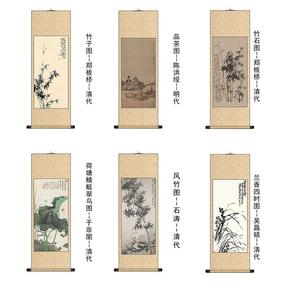 竹子图--郑板桥--清代
品茶图--陈洪绶--明代
竹石图--郑板桥--清代
荷塘蜻蜓翠鸟图--于非闇--清代
风竹图--石涛--清代
兰香四时图--吴昌硕--清代